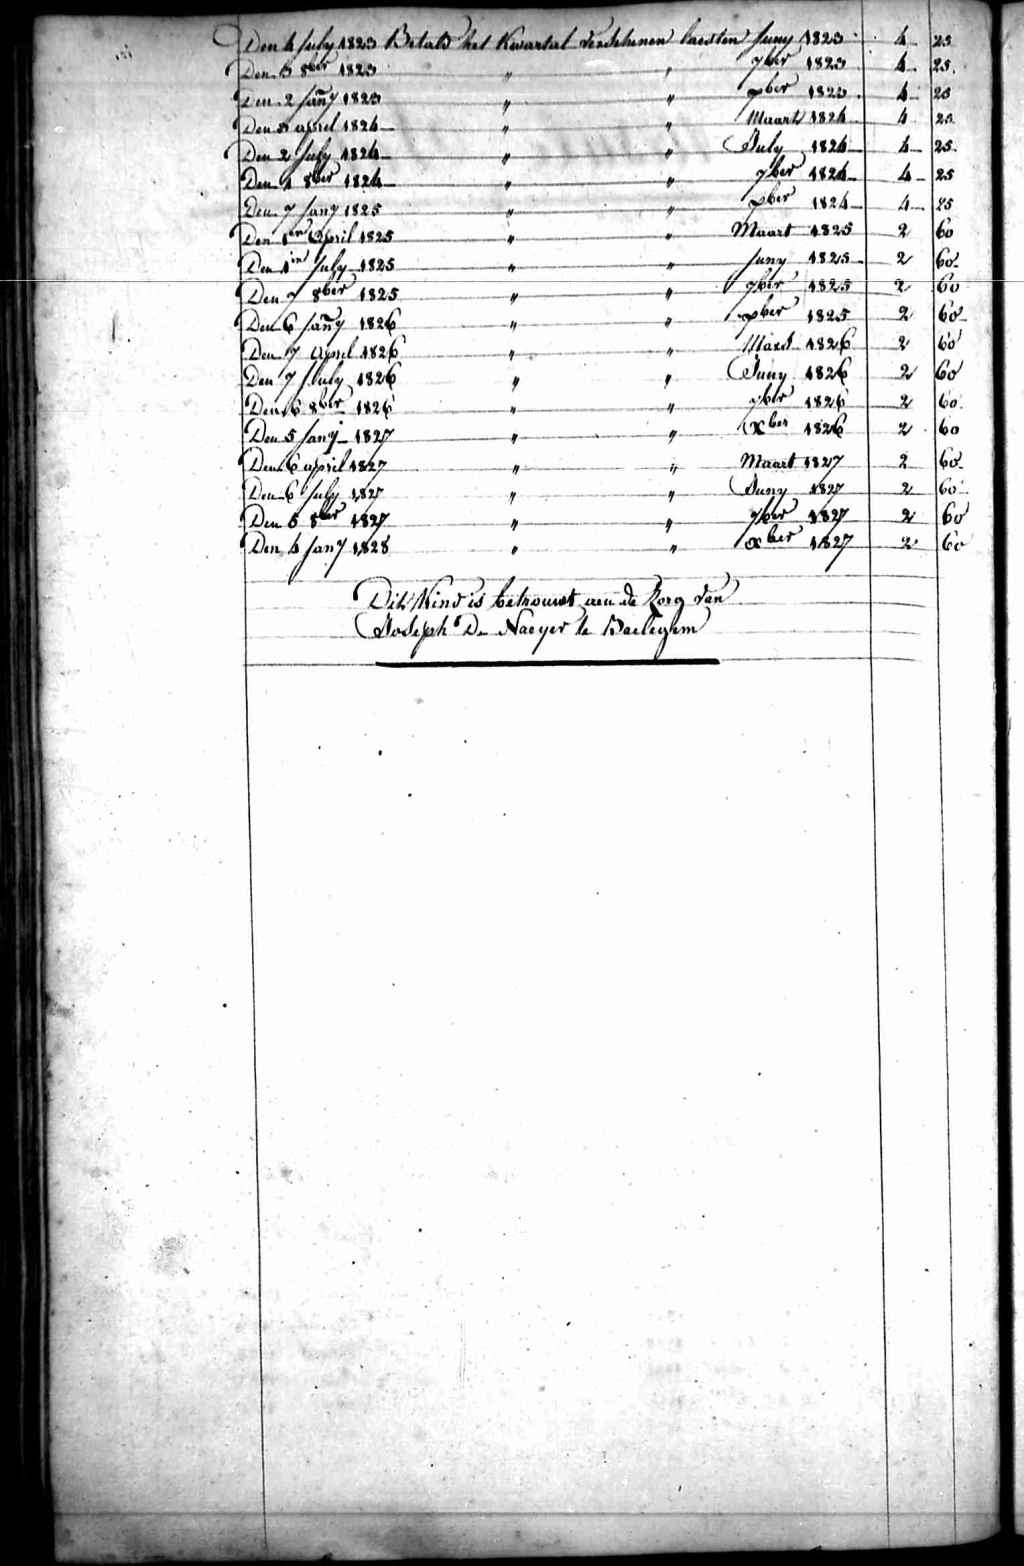 Den 4 July 1823 Betald het Kwartal verschenen laesten Juny 1823 4 25
Den 3 8ber 1823 " " 7ber 1823 4 25
Den 2 Jany 1823 " " xber 1823 4 25
Den 3 april 1824 " " Maart 1824 4 25
Den 2 July 1824 " " July 1824 4 25
Den 1 8ber 1824 " " 7ber 1824 4 25
Den 7 Jany 1825 " " xber 1824 4 25
Den 1en April 1825 " " Maart 1825 2 60
Den 1en July 1825 " " Juny 1825 2 60
Den 7 8ber 1825 " " 7ber 1825 2 60
Den 6 Jany 1826 " " xber 1825 2 60
Den 7 April 1826 " " Maart 1826 2 60
Den 7 July 1826 " " Juny 1826 2 60
Den 6 8ber 1826 " " 7ber 1826 2 60
Den 5 Jany 1827 " " Xber 1826 2 60
Den 6 april 1827 " " Maart 1827 2 60
Den 6 July 1827 " " Juny 1827 2 60
Den 5 8ber 1827 " " 7ber 1827 2 60
Den 4 Jany 1828 " " xber 1827 2 60
Dit Kind is betrouwt aen de Zorg van
Joseph De Naeyer te Baelegem